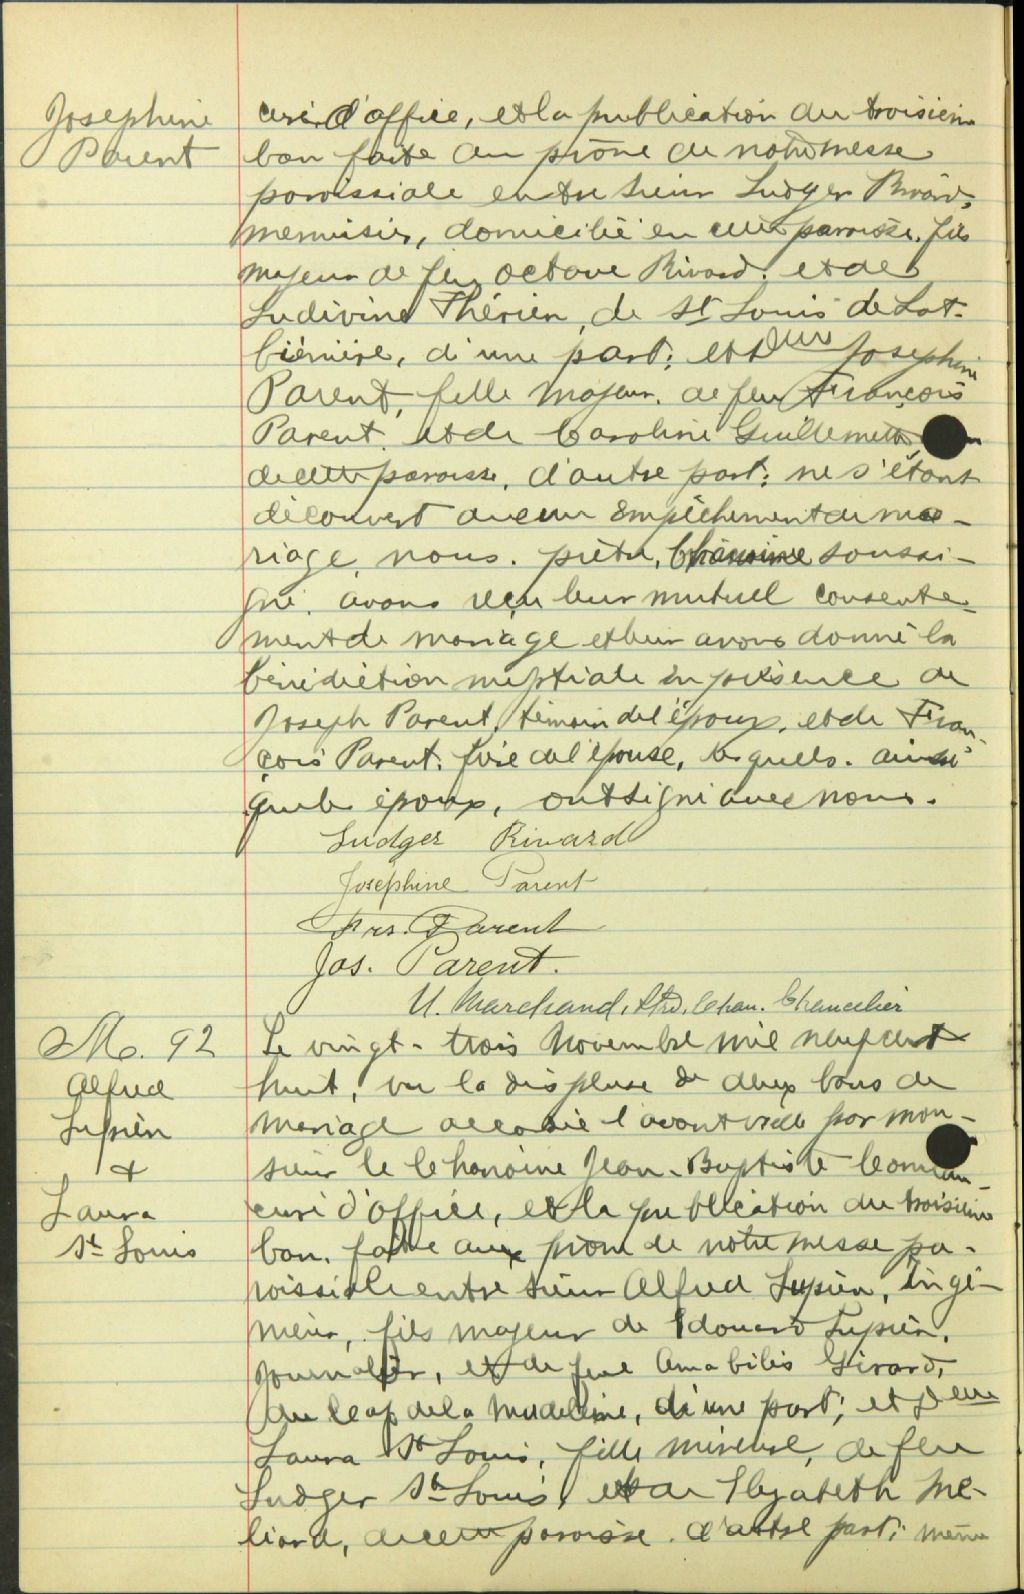 Josephine
Parent
curé d'office, et la publication du troisième
ban faite au prône de notre messe
paroissiale entre sieur Ludger Rivard,
menuisier, domicilié en cette paroisse, fils
majeur de feu Octave Rivard, et de
Ludivine Thérien, de St Louis de Lot-
binière, d'une part; et Dlle Josephine
Parent, fille majeur, de feu François
Parent et de Caroline Guillemette,
de cette paroisse, d'autre part; ne s'étant
découvert aucun empêchement de ma-
riage, nous, prêtre, Chanoine soussi-
gné, avons reçu leur mutuel consente-
ment de mariage et leur avons donné la
bénédiction nuptiale en présence de
Joseph Parent, témoin de l'époux, et de Fran-
çois Parent, frère de l'épouse, lesquels, ainsi
que les époux, ont signé avec nous.
Ludger Rivard
Joséphine Parent
Frs. Parent
Jos. Parent.
U. Marchand, Ptre, Chan. Chancelier
M. 92
Alfred
Lupien
+
Laura
St Louis
Le vingt-trois Novembre mil neuf cent
huit, vu la dispense de deux bans de
mariage accordée l'avant veille par mon-
sieur le Chanoine Jean-Baptiste
curé d'office, et la publication du troisième
ban, faite aux prone de notre messe pa-
roissiale entre sieur Alfred Lupien, ingé-
nieur, fils majeur de Edouard Lupien,
journalier, et de feue Amabilis Girard,
du Cap de la Madeleine, d'une part; et Delle
Laura St Louis, fille mineure, de feu
Ludger St Louis, et de Elyzabeth Mé-
liard, de cette paroisse d'autre part;